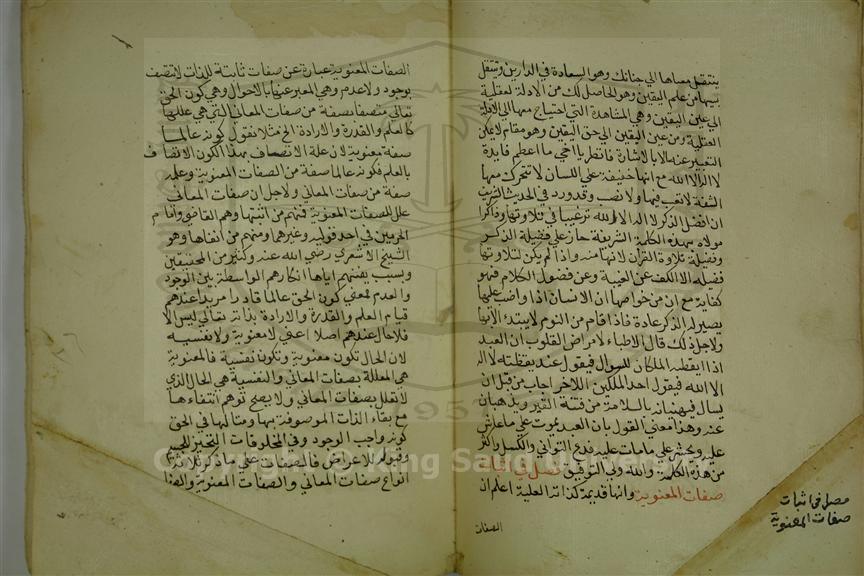 ينتقل معناها الى جنانك وهو السعادة في الدارين وينتقل
بها من علم اليقين وهو الحاصل لك من الادلة لعقلية
الى عين اليقين وهي المشاهدة التي احتياج معها الى الادلة
العقلية ومن عين اليقين الى حق اليقين وهو مقام لا يمكن
التعبير عنه الا بالاشارة فانظر يا اخي ما اعظم فايدة
لا اله الا الله مع انها خفيفة على اللسان لا تتحرك معها
الشفة لا تعب فيها ولا نصب وقد ورد في الحديث الشريف
ان افضل الذكر لا اله الا الله ترغيبا في تلاوتها وذاكرا
مولاه بهذه الكلمة الشريفة حاز على فضيلة الذكر
وفضيلة تلاوة القرآن لانها منه واذا لم يكن لتلاوتها
فضيله الا الكف عن الغيبة وعن فضول الكلام فهو
كفاية مع ان من خواصها ان الانسان اذا واضب عليها
يصير له الذكر عادة فاذا قام من النوم لا يبتدء الا بها
ولاجل ذلك قال الاطباء لامراض القلوب ان العبد
اذا ايقظه الملكان للسوال فيقول عند يقظته لا اله
الا الله فيقول احد الملكين للاخر اجاب من قبل ان
يسال فيهنيانه بالسلامة من فتنة القبر ويذهبان
عنه وهذا معنى القول بان العبد يموت على ما عاش
عليه ويحشر على ما مات عليه فدع التواني والكسل واكثر
من هذه الكلمة والله ولي التوفيق فصل في اثبات
صفات المعنوية وانها قديمة كذاته العلية اعلم ان
الصفات
فصل في اثبات
صفات المعنوية
الصفات المعنوية عبارة عن صفات ثابتة للذات لا تتصف
بوجود ولا عدم وهي المعبر عنها بالاحوال وهي كون الحق
تعالى متصفا بصفة من صفات المعاني التي هي عللها
كالعلم والقدرة والارادة الخ مثلا نقول كونه عالما
صفة معنوية لان علة الاتصاف بهذا الكون الاتصاف
بالعلم فكونه عالما صفة من الصفات المعنوية وعلمه
صفة من صفات المعاني ولاجل ان صفات المعاني
علل للصفات المعنوية فمنهم من اثبتها وهم القاضي وامام
الحرمين في احد قوليه وغيرهما ومنهم من نفاها وهو
الشيخ الاشعري رضي الله عنه وكثير من المحققين
وبسبب نفيهم اياها انكارهم الواسطة بين الوجود
والعدم فمعنى كون الحق عالما قادرا مريدا عندهم
قيام العلم والقدرة والارادة بذاته تعالى ليس الا
فلا حال عندهم اصلا اعني لا معنوية ولا نفسيه
لان الحال تكون معنوية وتكون نفسية فالمعنوية
هي المعللة بصفات المعاني والنفسية هي الحال الذي
لا تعلل بصفات المعاني ولا يصح توهم انتفاءها
مع بقاء الذات الموصوفة بها ومثالها في الحق
كونه واجب الوجود وفي المخلوقات التحيز للجسم
وقبوله للاعراض فالصفات على ما ذكر ثلاثة
انواع صفات المعاني والصفات المعنوية والصفا
Copyright © King Saud University